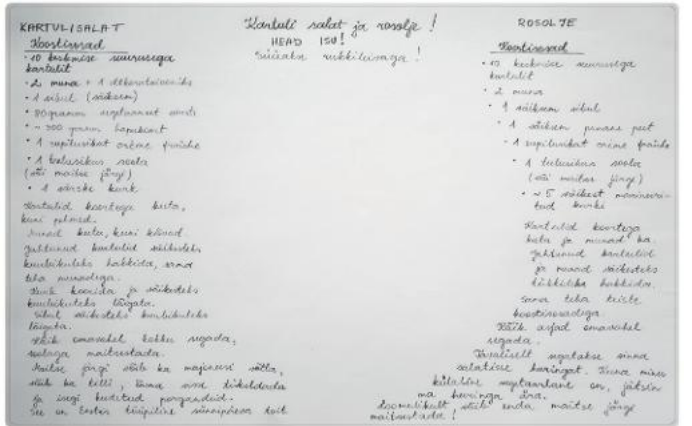 Kartuli salat ja rosolje!
HEAD ISU!
Süüakse rukkileivaga!
KARTULISALAT
Koostisosad
• 10 keskmise suurusega
kartulit
• 2 muna + 1 dekoratsiooniks
• 1 sibul (väiksem)
• 80 grammi
• ~ 300 grammi hapukoort
• 1 supilusikat crème fraîche
• 1 teelusikas soola
(või maitse järgi)
• 1 värske kurk
Kartulid koortega keeta,
kuni pehmed.
Munad keeta, kuni kõvad.
Jahtunud kartulid väikesteks
kuubikuteks hakkida, sama
teha munadega.
Kurk koorida ja väikesteks
kuubikuteks lõigata.
Sibul väikesteks kuubikuteks
lõigata.
Kõik omavahel kokku segada,
soolaga maitsestada.
Maitse järgi võib ka majoneesi võtta,
võib ka tilli, õuna sisse tükeldada
ja isegi keedetud porgandeid.
See on Eestis tüüpiline sünnipäeva toit
ROSOLJE
Koostisosad
• 10 keskmise suurusega
kartulit
• 2 muna
• 1 väiksem sibul
• 1 väiksem punane peet
• 1 supilusikat crème fraîche
• 1 teelusikas soola
(või maitse järgi)
• ~ 5 väikest marineeri-
tud kurki
Kartulid koortega
keeta ja munad ka.
Jahtunud kartulid
ja munad väikesteks
tükkideks hakkida.
Sama teha teiste
koostisosadega.
Kõik asjad omavahel
segada.
Tavaliselt segatakse sinna
salatisse heeringat. Kuna mines
külaline on, jätsin
ma heeringa ära.
Loomulikult võib enda maitse järgi
maitsestada!